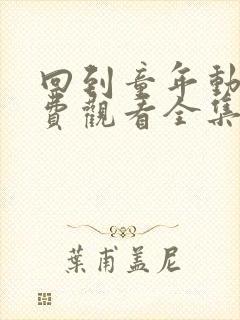 回到童年動
費觀看全集
葉甫盖尼